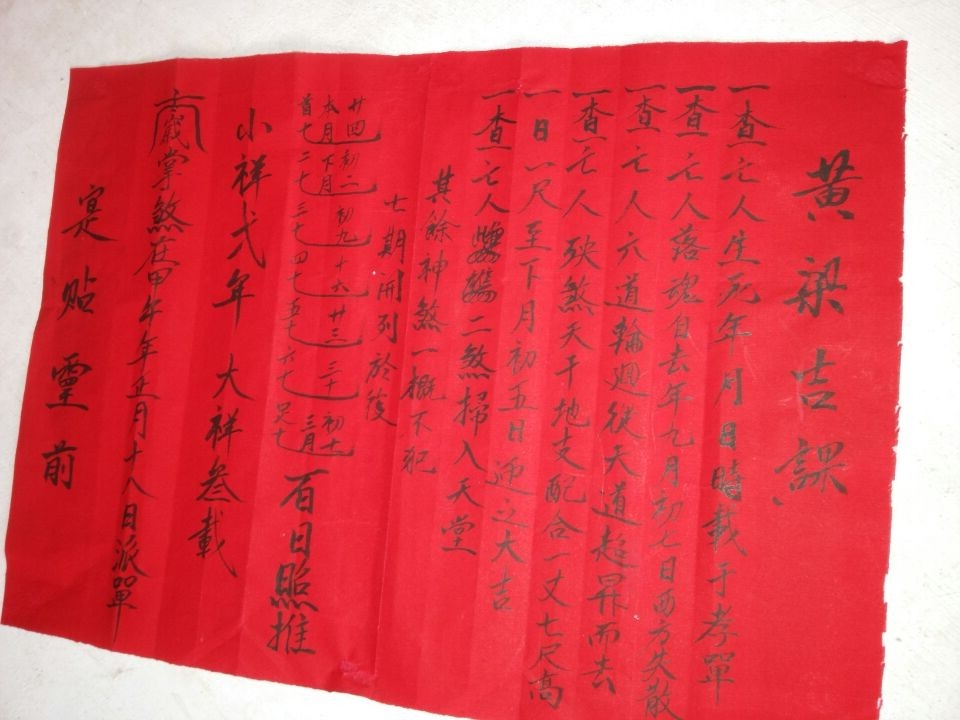 黄梁吉課
一查亡人生死年月日時載于孝單
一查亡人落魂自去年九月初七日西方失散
一查亡人六道輪廻從天道超昇而去
一查亡人殃煞天干地支配合一丈七尺高
一日一尺至下月初五日迎之大吉
一查亡人二煞掃入天堂
其餘神煞一概不犯
七期開列於後
廿四 初二 初九 十六 廿三 三十 初七
本月 下月 三月
首七 二七 三七 四七 五七 六七 足七
百日照推
小祥弍年 大祥叁載
掌煞在甲午年正月十八日派單
寔贴靈前